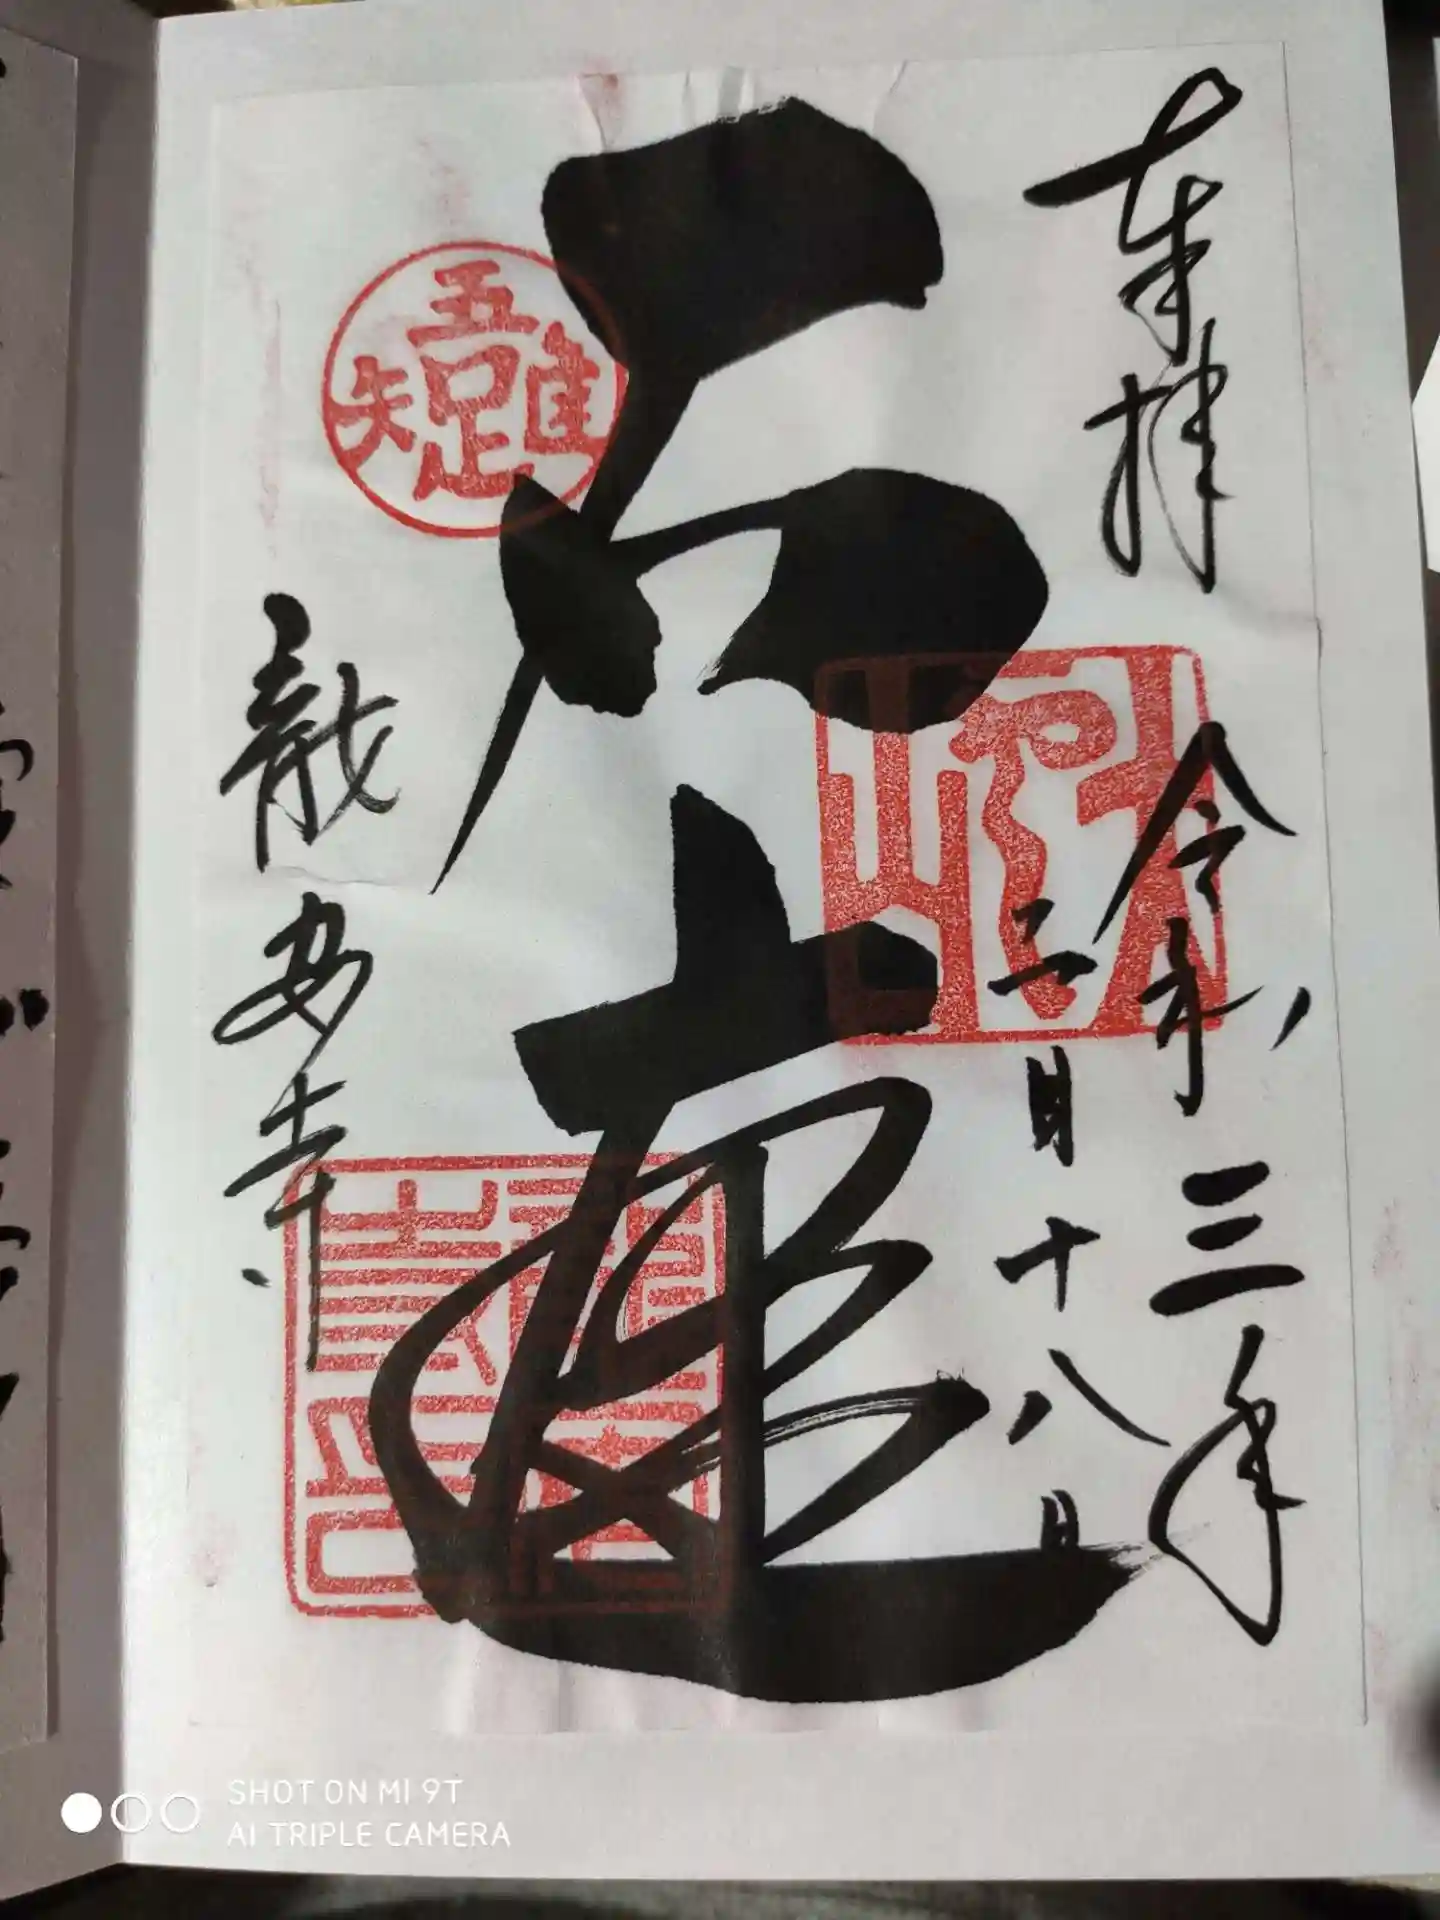 奉拝
大雲山
令和三年
二月十八日
石庭
吾唯足知
龍安寺
龍安寺印
SHOT ON MI 9T
AI TRIPLE CAMERA